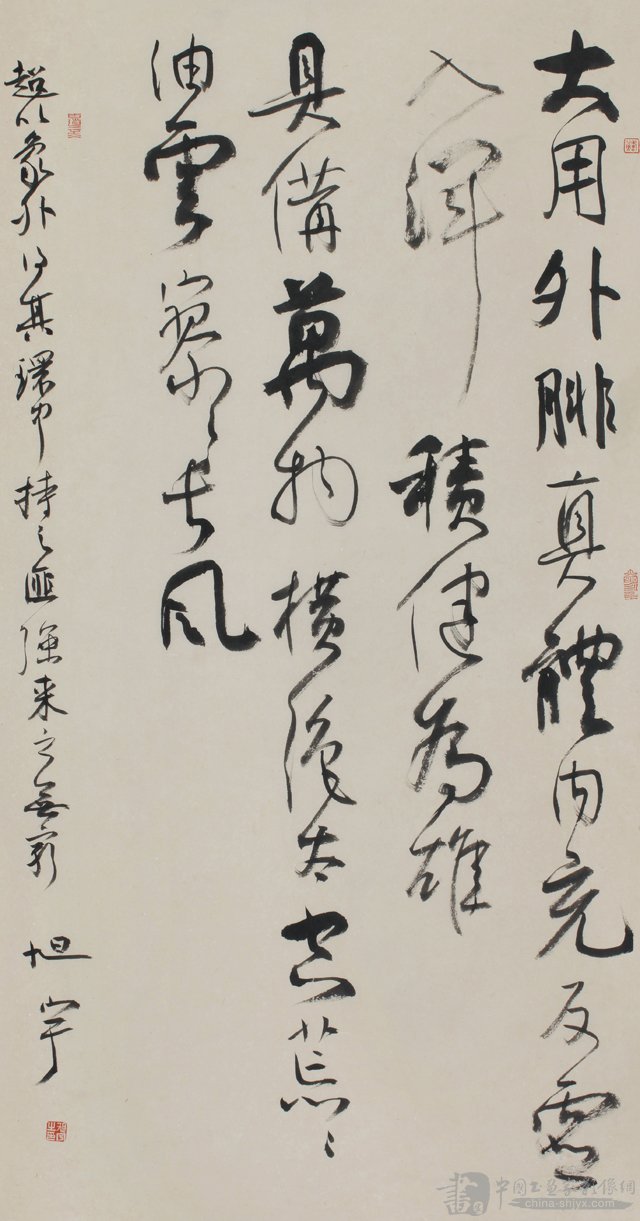 大用外腓真體內充反虛
入渾積健為雄
具備萬物橫絕太空荒々
油雲寥々長風
超以象外得其環中持之匪強来之無窮
旭宇
china-shjyx.com